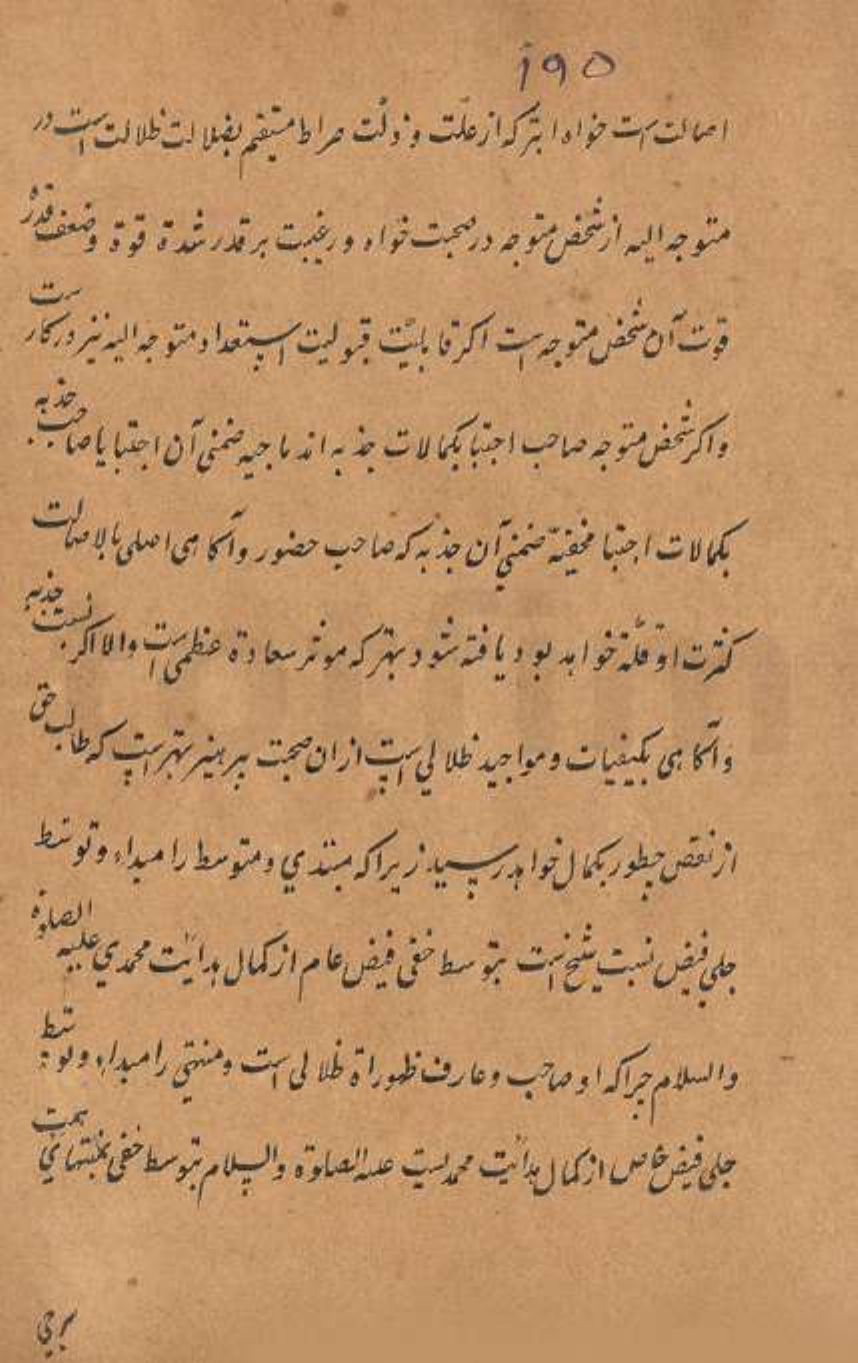 ۱۹۵
اصالت است خواه ابتر که از علّت و زولّت صراط مستقیم بضلالت ظلالت است در
متوجه الیه از شخص متوجه در صحبت خواه و رغبت بر قدر شدة قوة وضعف قدرة
قوت آن شخص متوجه است اکر قابلیّت قبولیت استعداد متوجه الیه نیز در کار ست
واکر شخص متوجه صاحب اجتبا بکمالات جذبه اندماجیه ضمنی آن اجتبا یا صاحب جذبه
بکمالات اجتبا مخفیّه ضمنی آن جذبه که صاحب حضور وآکاهی اصلی بالاصالت
کثرت او قلّة خواهد بود یافته شود بهتر که موثر سعادة عظمی است والا اکر نسبت جذبه
وآکاهی بکیفیات ومواجید ظلالی است ازان صحبت پرهیز بهتر است که طالب حق
از نقص چطور بکمال خواهد رسید زیرا که مبتدی ومتوسط را مبداء وتوسط
جلی فیض نسبت شیخ است بتوسط خفی فیض عام از کمال هدائت محمدی علیه الصلوة
والسلام چرا که او صاحب وعارف ظهوراة ظلالی است ومنتهی را مبداء وتوسط
جلی فیض خاص از کمال هدائت محمدیست علیه الصلوة والسلام بتوسط خفی همت